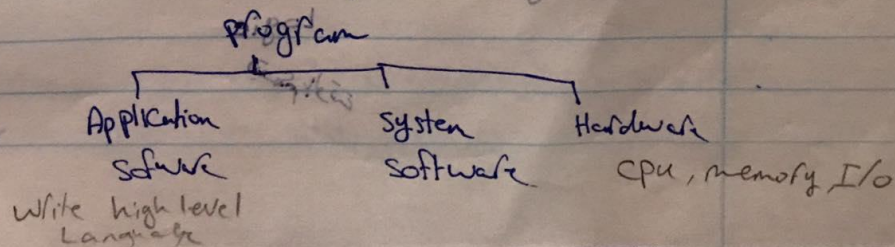 program
Application
Sofware
Write high level
Language
System
Software
Hardware
CPU, memory, I/o